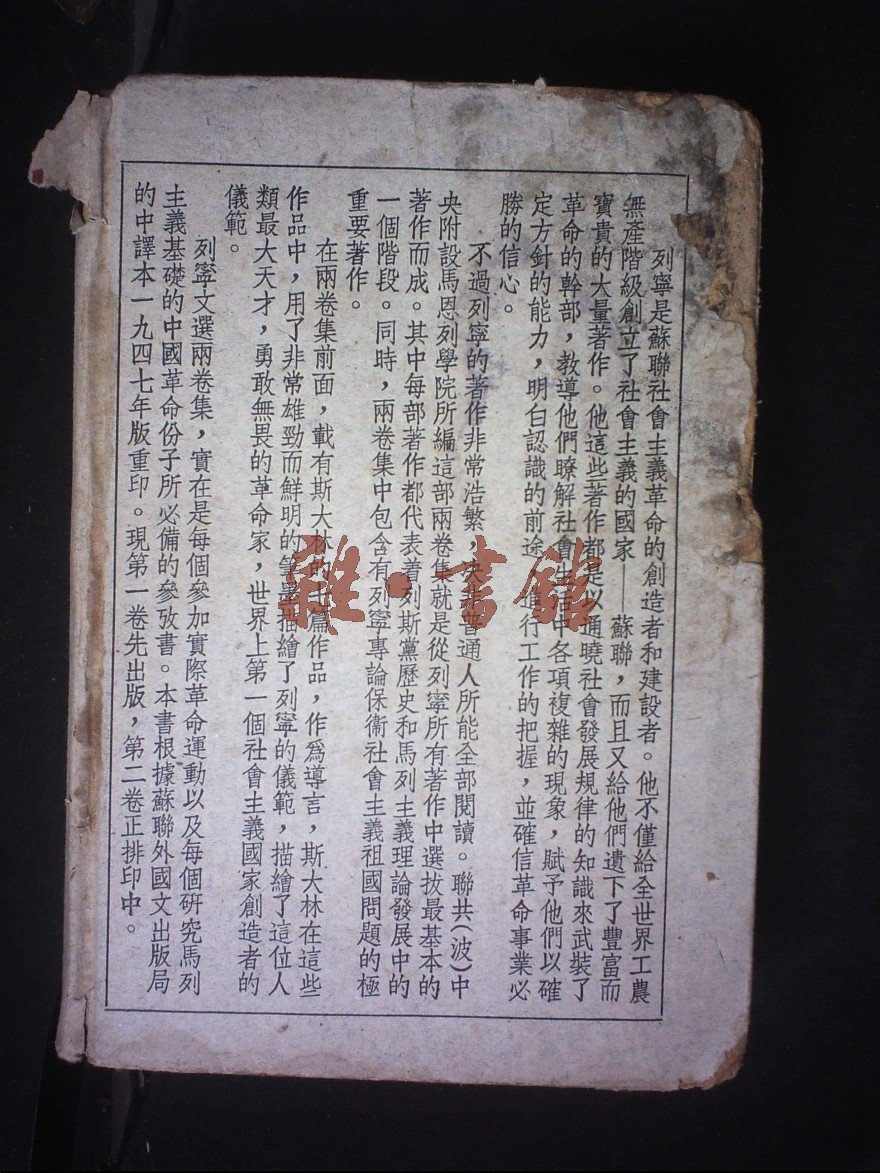 列寧是蘇聯社會主義革命的創造者和建設者。他不僅給全世界工農
無產階級創立了社會主義的國家——蘇聯，而且又給他們遺下了豐富而
寶貴的大量著作。他這些著作都是以通曉社會發展規律的知識來武裝了
革命的幹部，教導他們瞭解社會生活中各項複雜的現象，賦予他們以確
定方針的能力，明白認識的前途，進行工作的把握，並確信革命事業必
勝的信心。
不過列寧的著作非常浩繁，决非普通人所能全部閱讀。聯共(波)中
央附設馬恩列學院所編這部兩卷集就是從列寧所有著作中選拔最基本的
著作而成。其中每部著作都代表着列斯黨歷史和馬列主義理論發展中的
一個階段。同時，兩卷集中包含有列寧專論保衞社會主義祖國問題的極
重要著作。
在兩卷集前面，載有斯大林的 篇作品，作爲導言，斯大林在這些
作品中，用了非常雄勁而鮮明的筆墨描繪了列寧的儀範，描繪了這位人
類最大天才，勇敢無畏的革命家，世界上第一個社會主義國家創造者的
儀範。
列寧文選兩卷集，實在是每個參加實際革命運動以及每個研究馬列
主義基礎的中國革命份子所必備的參攷書。本書根據蘇聯外國文出版局
的中譯本一九四七年版重印。現第一卷先出版，第二卷正排印中。
雜·書館